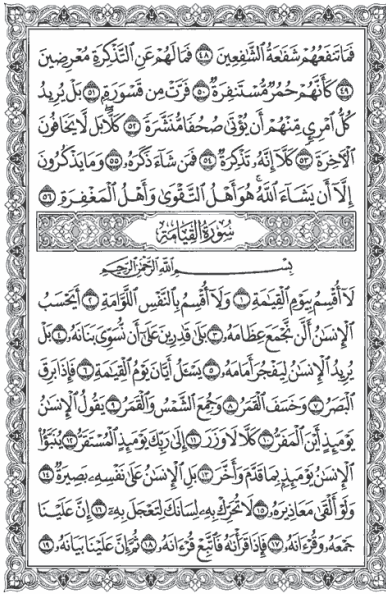 فَمَا تَنفَعُهُمْ شَفَٰعَةُ ٱلشَّٰفِعِينَ ٤٨ فَمَا لَهُمْ عَنِ ٱلتَّذْكِرَةِ مُعْرِضِينَ
٤٩ كَأَنَّهُمْ حُمُرٌ مُّسْتَنفِرَةٌ ٥٠ فَرَّتْ مِن قَسْوَرَةٍۭ ٥١ بَلْ يُرِيدُ
كُلُّ ٱمْرِئٍ مِّنْهُمْ أَن يُؤْتَىٰ صُحُفًا مُّنَشَّرَةً ٥٢ كَلَّا ۖ بَل لَّا يَخَافُونَ
ٱلْءَاخِرَةَ ٥٣ كَلَّآ إِنَّهُۥ تَذْكِرَةٌ ٥٤ فَمَن شَآءَ ذَكَرَهُۥ ٥٥ وَمَا يَذْكُرُونَ
إِلَّآ أَن يَشَآءَ ٱللَّهُ ۚ هُوَ أَهْلُ ٱلتَّقْوَىٰ وَأَهْلُ ٱلْمَغْفِرَةِ ٥٦
سُورَةُ ٱلْقِيَامَةِ
بِسْمِ ٱللَّهِ ٱلرَّحْمَٰنِ ٱلرَّحِيمِ
لَآ أُقْسِمُ بِيَوْمِ ٱلْقِيَٰمَةِ ١ وَلَآ أُقْسِمُ بِٱلنَّفْسِ ٱللَّوَّامَةِ ٢ أَيَحْسَبُ
ٱلْإِنسَٰنُ أَلَّن نَّجْمَعَ عِظَامَهُۥ ٣ بَلَىٰ قَٰدِرِينَ عَلَىٰٓ أَن نُّسَوِّىَ بَنَانَهُۥ ٤ بَلْ
يُرِيدُ ٱلْإِنسَٰنُ لِيَفْجُرَ أَمَامَهُۥ ٥ يَسْـَٔلُ أَيَّانَ يَوْمُ ٱلْقِيَٰمَةِ ٦ فَإِذَا بَرِقَ
ٱلْبَصَرُ ٧ وَخَسَفَ ٱلْقَمَرُ ٨ وَجُمِعَ ٱلشَّمْسُ وَٱلْقَمَرُ ٩ يَقُولُ ٱلْإِنسَٰنُ
يَوْمَئِذٍ أَيْنَ ٱلْمَفَرُّ ١٠ كَلَّا لَا وَزَرَ ١١ إِلَىٰ رَبِّكَ يَوْمَئِذٍ ٱلْمُسْتَقَرُّ ١٢ يُنَبَّؤُا۟
ٱلْإِنسَٰنُ يَوْمَئِذٍۭ بِمَا قَدَّمَ وَأَخَّرَ ١٣ بَلِ ٱلْإِنسَٰنُ عَلَىٰ نَفْسِهِۦ بَصِيرَةٌ ١٤
وَلَوْ أَلْقَىٰ مَعَاذِيرَهُۥ ١٥ لَا تُحَرِّكْ بِهِۦ لِسَانَكَ لِتَعْجَلَ بِهِۦٓ ١٦ إِنَّ عَلَيْنَا
جَمْعَهُۥ وَقُرْءَانَهُۥ ١٧ فَإِذَا قَرَأْنَٰهُ فَٱتَّبِعْ قُرْءَانَهُۥ ١٨ ثُمَّ إِنَّ عَلَيْنَا بَيَانَهُۥ ١٩